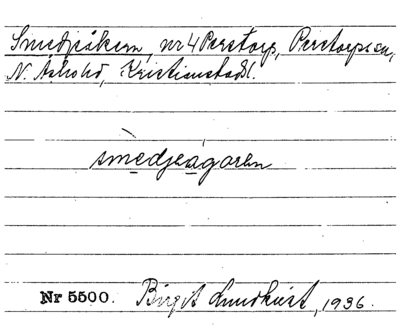 Smedjeåkern, nr 4 Perstorp, Perstorps sn,
N. Åsbo hd, Kristianstads l.
smedjeágoren
Nr 5500. Birgit Lundkvist, 1936.